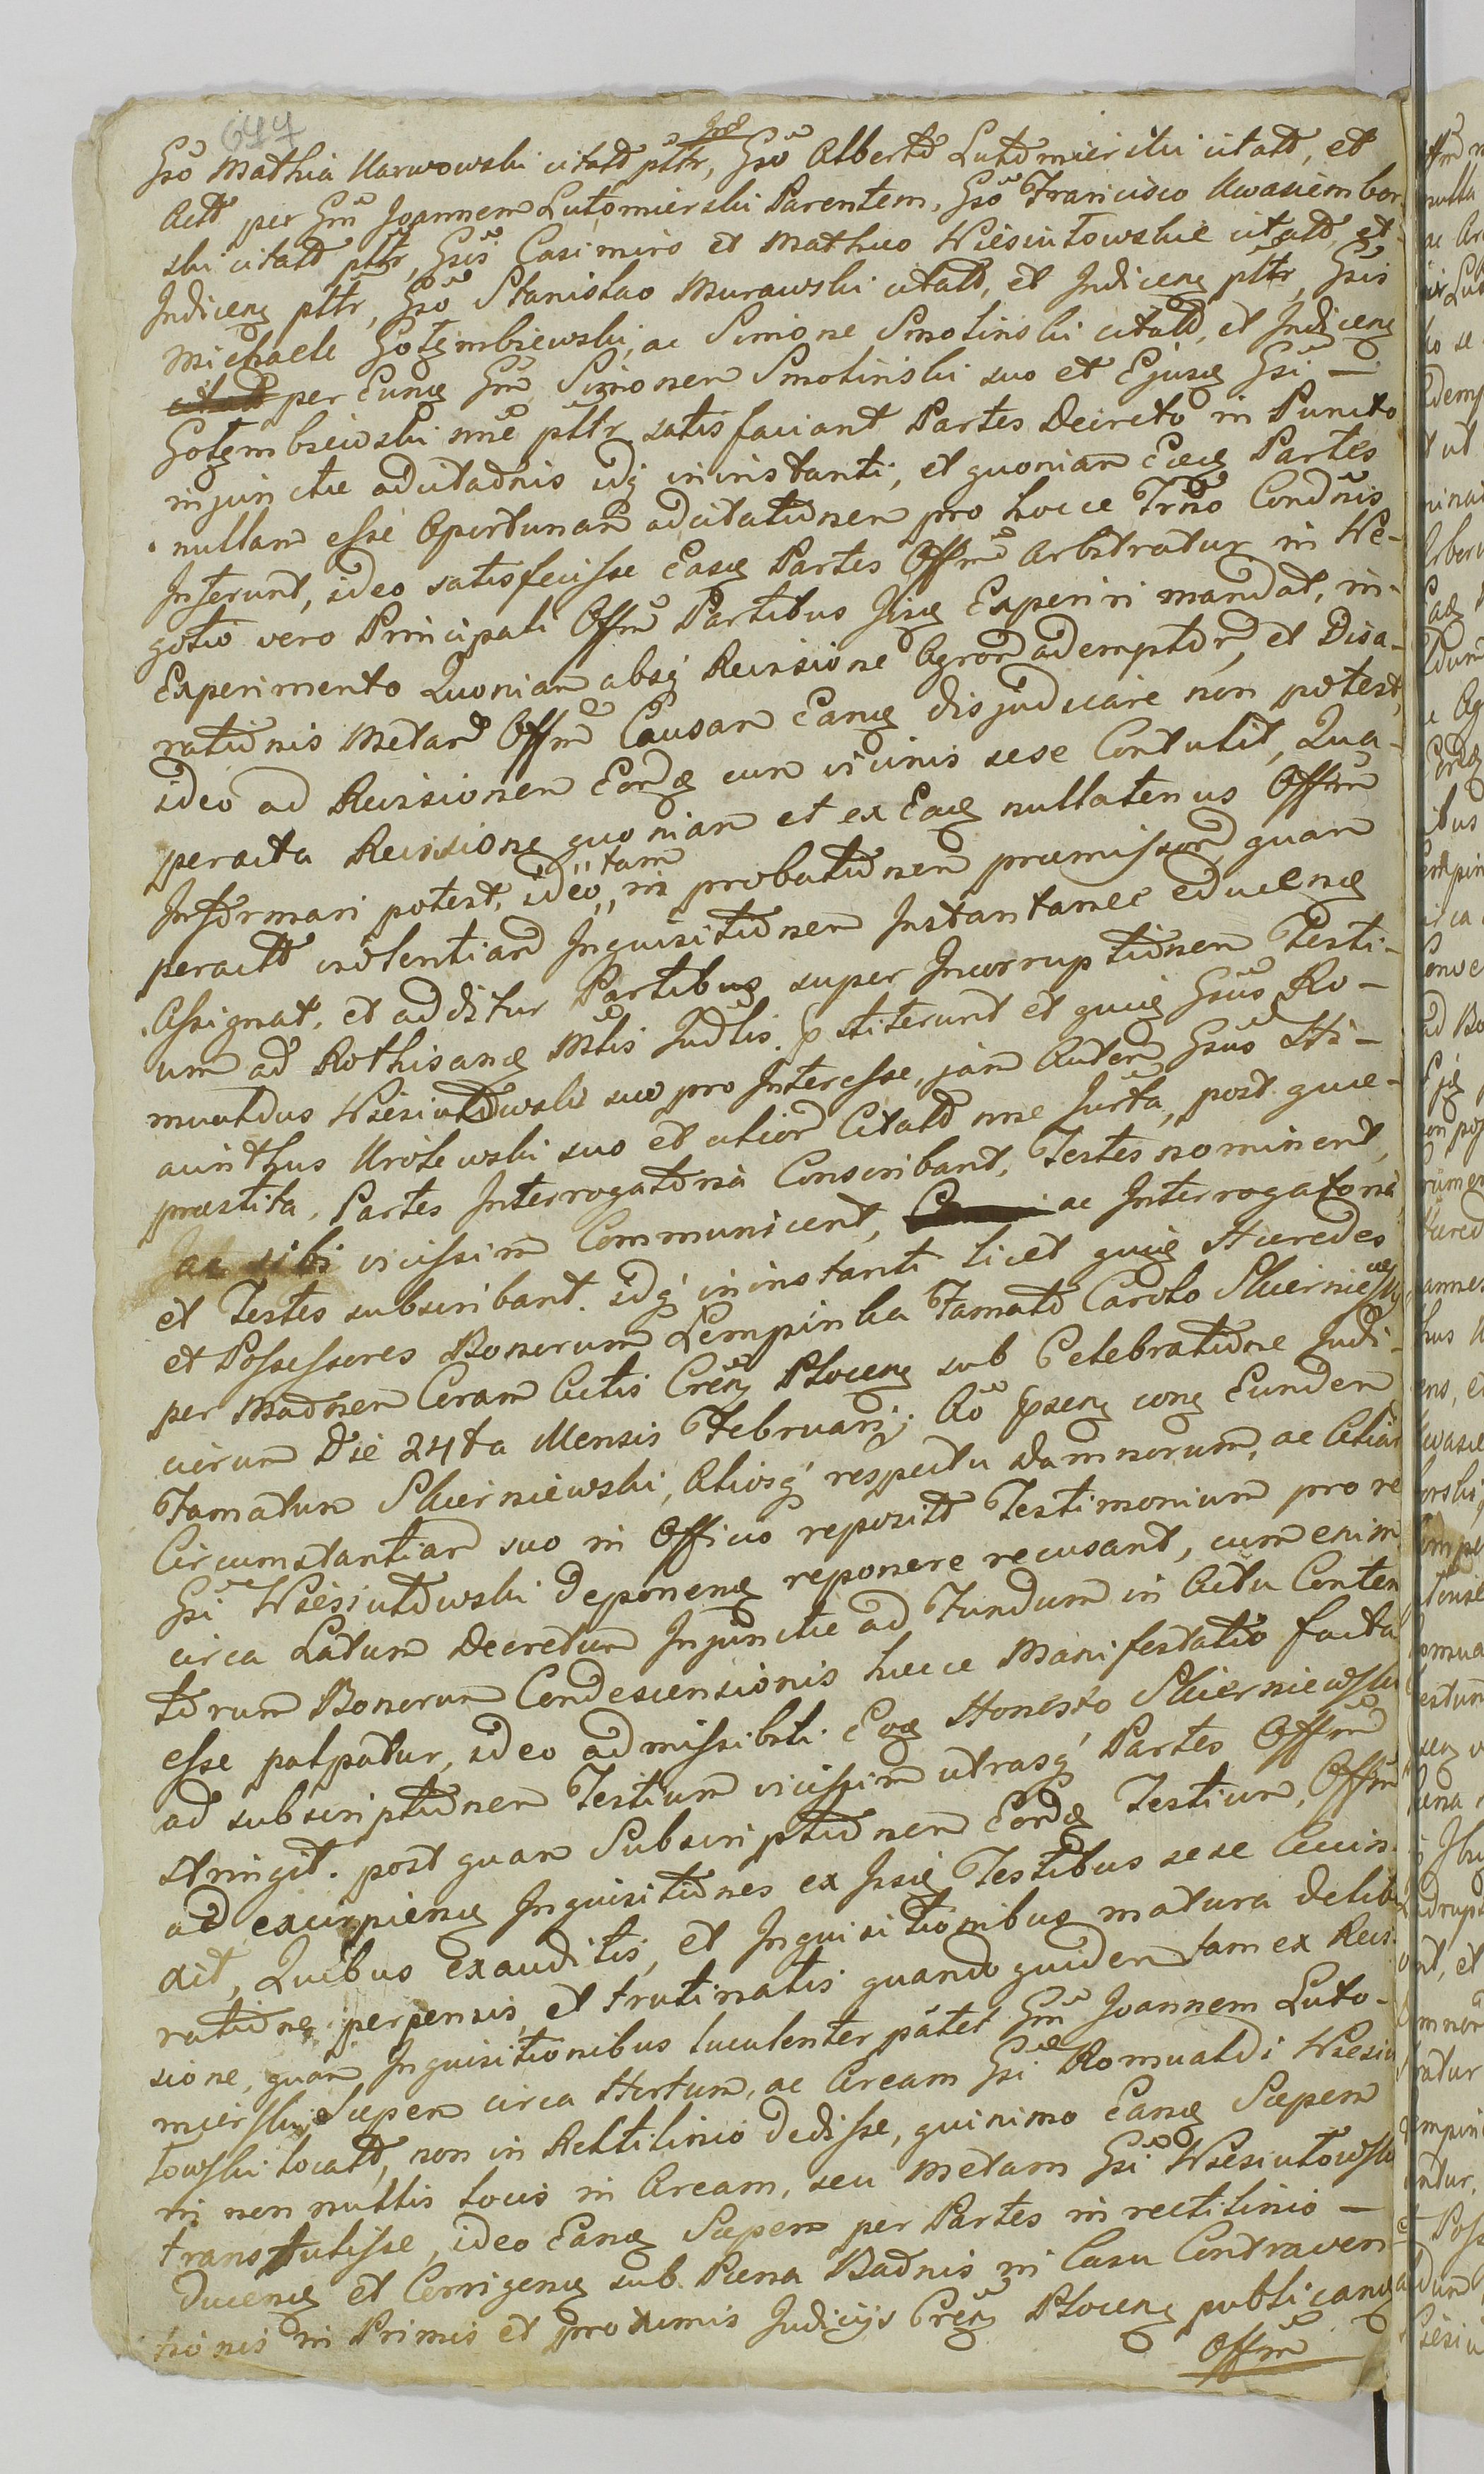 647
Gso Mathia Karwowski citato pltr, Gso Alberto Lutomierski citato, et
Actt per Gm Joannem Lutomierski Parentem, Gso Francisco Kwasiembor
ski citato pltr, Gsis Casimiro et Matheo Wiesiutowskie citatt, et
Indiceng pltr, Gso Stanislao Murawski citatt, et Indiceng pltr, Gsis
Michaele Gołembiewski, ac Simone Smolinski citatt, et Indiceng
per Eung Gm Simonem Smolinski suo et Ejusq Gsi —
Gołembiewski nne pltr satisfaciant Partes Decreto in Puncto
injunctæ adcitatnis idq ininstanti, et quoniam Eæq Partes
nullam esse Oportunam adcitationem pro hocce Trno Condnis
Inferunt, ideo satisfecisse Easq Partes Offm arbitratur in Ne-
gotio vero Principali Offm Partibus Ipsq Experiri mandat, in
Experimento Quoniam absq Revisione Agror ademptor, et Disa-
rationis Metar Offm Causam Eamq disjudicare non potest,
ideo ad Revisionem Eorq cum vicinis sese Contulit, Qua
peracta Revisione quoniam et ex Eaq nullatenus Offm
Informari potest, ideo tam in probationem præmissor, quam
peractt violentiar Inquisitionem Instantanee educeng
Assignat, et additur Partibus super Incorruptionem Testi-
um ad Rothisang Mtis Judlis pstiterunt et quiq Gsus Ro-
mualdus Wiesiutowski suo pro Interesse, jam Autem Gsus Hi-
acinthus Krolewski suo et alior Citatt nne Jurta, post quæ
præstita, Partes Interrogatoria Conscribant, Testes nominent,
ac sibi vicissim Communicent, ac Interrogatoria
et Testes subscribant. idq ininstanti licet quiq Hæredes
et Possessores Bonorum Lempinka Famato Carolo Skierniewski
per Maonem Coram Actis Cren Ploceng sub Celebratione Judi-
ciorum Die 24ta Mensis Februarij Ao pseng cong Eundem
Famatum Skierniewski, Aliosq respectu damnorum, ac Aliar
Circumstantiar suo in Officio repositt Testimonium pro re
Gsi Wiesiutowski deponeng reponere recusant, cum enim
circa Latum Decretum Injunctæ ad Fundum in Actu Conten
torum Bonorum Condescensionis hæcce Manifestatio facta
esse palpatur, ideo admissibili Eoq Honesto Skierniewski
ad subscriptionem Testium vicissim utrasq Partes Offm
stringit. post quam Subscriptionem Eorq Testium, Offm
ad excipieng Inquisitiones ex Ipsiq Testibus sese Accin-
xit, Quibus Exauditis, et Inquisitionibus matura delibe
ratione perpensis, et trutinatis quandoquidem tam ex Revi-
sione, quam Inquisitionibus luculenter patet Gm Joannem Luto-
mierski Sæpem circa Hortum, ac Aream Gsi Romualdi Wiesiu
towski locatt, non in Rektilinio dedisse, quinimo Eamq Sæpem
in non nullis locis in Aream, seu Metam Gsi Wiesiutowski
transtulisse, ideo Eamq Sæpem per Partes in rectilinio —
Duceng et Corrigeng sub Pæna Badnis in Casu Contraven
tionis in Primis et proximis Judicijs Cren Ploceng publicang
Offm